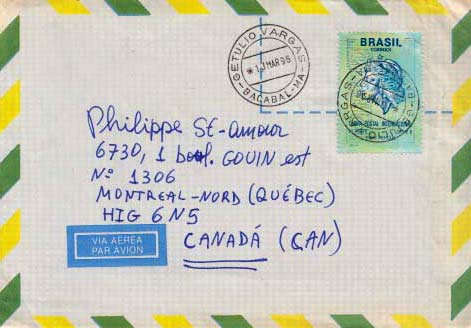 GETULIO VARGAS
*13 MAR 98
BACABAL-MA
BRASIL
CORREIOS
Philippe St-amour
6730, 1 boul. GOUIN est
Nº 1306
MONTREAL-NORD (QUÉBEC)
HIG 6N5
CANADÁ (CAN)
VIA AEREA
PAR AVION